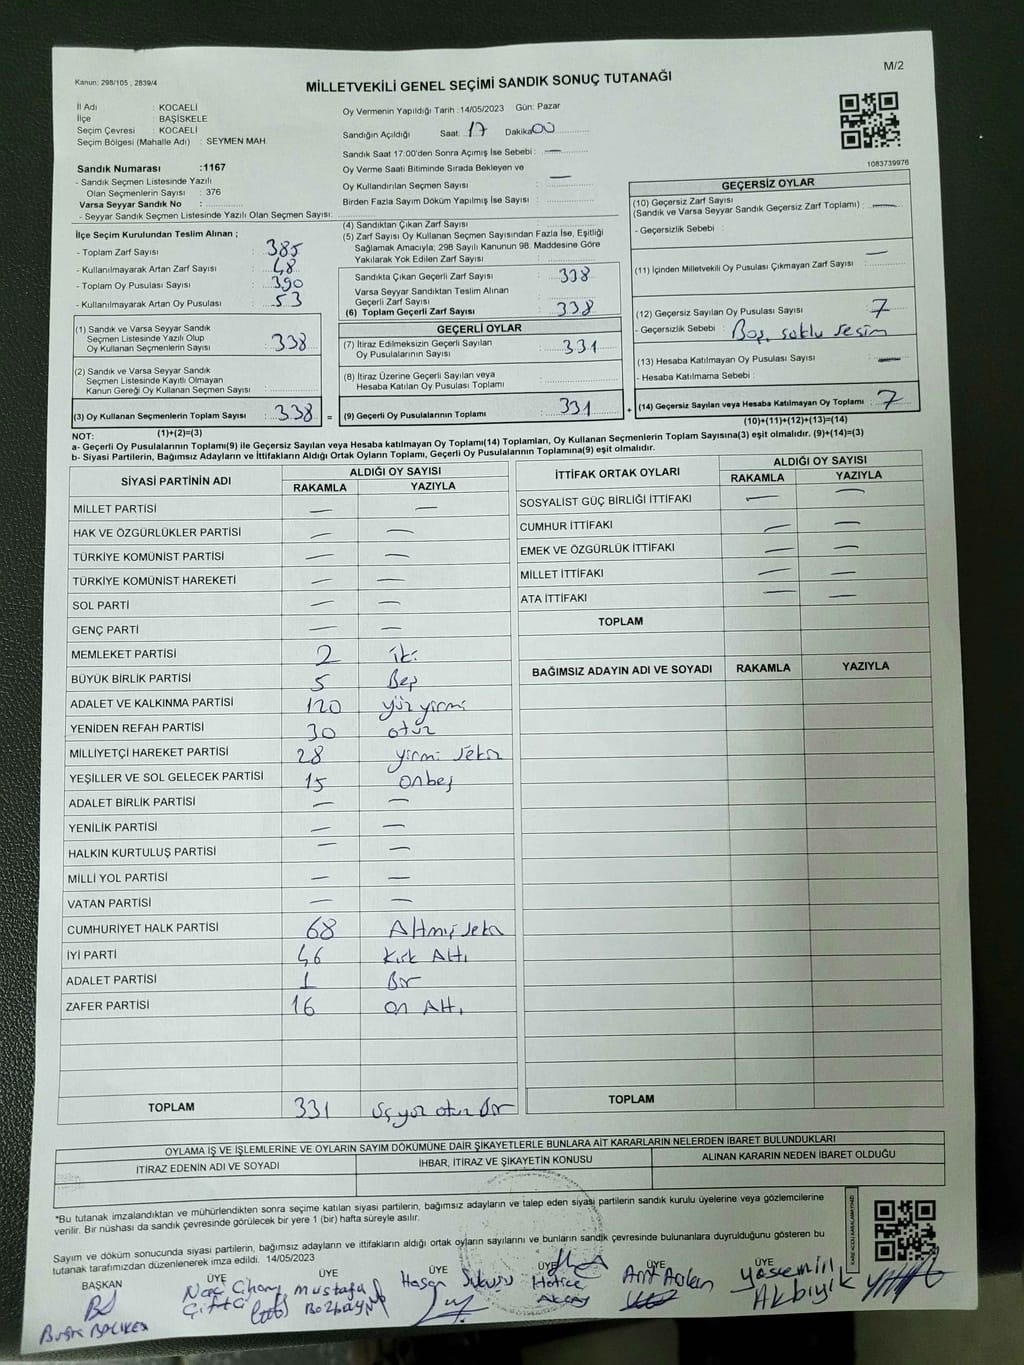 M/2
Kanun: 298/105 , 2839/4
MİLLETVEKİLİ GENEL SEÇİMİ SANDIK SONUÇ TUTANAĞI
İl Adı : KOCAELİ
İlçe : BAŞİSKELE
Seçim Çevresi : KOCAELİ
Seçim Bölgesi (Mahalle Adı) : SEYMEN MAH.
Sandık Numarası :1167
- Sandık Seçmen Listesinde Yazılı
Olan Seçmenlerin Sayısı : 376
Varsa Seyyar Sandık No :
- Seyyar Sandık Seçmen Listesinde Yazılı Olan Seçmen Sayısı:
Oy Vermenin Yapıldığı Tarih :14/05/2023 Gün: Pazar
Sandığın Açıldığı Saat: 17 Dakika:00
Sandık Saat 17:00'den Sonra Açımış İse Sebebi : —
Oy Verme Saati Bitiminde Sırada Bekleyen ve
Oy Kullandırılan Seçmen Sayısı : —
Birden Fazla Sayım Döküm Yapılmış İse Sayısı :
1083739976
İlçe Seçim Kurulundan Teslim Alınan ;
- Toplam Zarf Sayısı : 385
- Kullanılmayarak Artan Zarf Sayısı : 48
- Toplam Oy Pusulası Sayısı : 390
- Kullanılmayarak Artan Oy Pusulası : 53
(1) Sandık ve Varsa Seyyar Sandık
Seçmen Listesinde Yazılı Olup
Oy Kullanan Seçmenlerin Sayısı : 338
(2) Sandık ve Varsa Seyyar Sandık
Seçmen Listesinde Kayıtlı Olmayan
Kanun Gereği Oy Kullanan Seçmen Sayısı :
(3) Oy Kullanan Seçmenlerin Toplam Sayısı : 338
(1)+(2)=(3)
(4) Sandıktan Çıkan Zarf Sayısı :
(5) Zarf Sayısı Oy Kullanan Seçmen Sayısından Fazla İse, Eşitliği
Sağlamak Amacıyla; 298 Sayılı Kanunun 98. Maddesine Göre
Yakılarak Yok Edilen Zarf Sayısı :
Sandıkta Çıkan Geçerli Zarf Sayısı : 338
Varsa Seyyar Sandıktan Teslim Alınan
Geçerli Zarf Sayısı :
(6) Toplam Geçerli Zarf Sayısı : 338
GEÇERLİ OYLAR
(7) İtiraz Edilmeksizin Geçerli Sayılan
Oy Pusulalarının Sayısı : 331
(8) İtiraz Üzerine Geçerli Sayılan veya
Hesaba Katılan Oy Pusulası Toplamı :
= (9) Geçerli Oy Pusulalarının Toplamı : 331
GEÇERSİZ OYLAR
(10) Geçersiz Zarf Sayısı
(Sandık ve Varsa Seyyar Sandık Geçersiz Zarf Toplamı) : —
- Geçersizlik Sebebi :
(11) İçinden Milletvekili Oy Pusulası Çıkmayan Zarf Sayısı : —
(12) Geçersiz Sayılan Oy Pusulası Sayısı : 7
- Geçersizlik Sebebi :
(13) Hesaba Katılmayan Oy Pusulası Sayısı : —
- Hesaba Katılmama Sebebi :
+ (14) Geçersiz Sayılan veya Hesaba Katılmayan Oy Toplamı : 7
(10)+(11)+(12)+(13)=(14)
NOT:
a- Geçerli Oy Pusulalarının Toplamı(9) ile Geçersiz Sayılan veya Hesaba katılmayan Oy Toplamı(14) Toplamları, Oy Kullanan Seçmenlerin Toplam Sayısına(3) eşit olmalıdır. (9)+(14)=(3)
b- Siyasi Partilerin, Bağımsız Adayların ve İttifakların Aldığı Ortak Oyların Toplamı, Geçerli Oy Pusulalarının Toplamına(9) eşit olmalıdır.
SİYASİ PARTİNİN ADI ALDIĞI OY SAYISI
RAKAMLA YAZIYLA
MİLLET PARTİSİ — —
HAK VE ÖZGÜRLÜKLER PARTİSİ — —
TÜRKİYE KOMÜNİST PARTİSİ — —
TÜRKİYE KOMÜNİST HAREKETİ — —
SOL PARTİ — —
GENÇ PARTİ — —
MEMLEKET PARTİSİ 2 iki
BÜYÜK BİRLİK PARTİSİ 5 Beş
ADALET VE KALKINMA PARTİSİ 120 yüz yirmi
YENİDEN REFAH PARTİSİ 30 otuz
MİLLİYETÇİ HAREKET PARTİSİ 28 yirmi sekiz
YEŞİLLER VE SOL GELECEK PARTİSİ 15 onbeş
ADALET BİRLİK PARTİSİ — —
YENİLİK PARTİSİ — —
HALKIN KURTULUŞ PARTİSİ — —
MİLLİ YOL PARTİSİ — —
VATAN PARTİSİ — —
CUMHURİYET HALK PARTİSİ 68 Altmış sekiz
İYİ PARTİ 46 Kırk Altı
ADALET PARTİSİ 1 Bir
ZAFER PARTİSİ 16 on Altı
TOPLAM 331 üçyüz otuz Bir
İTTİFAK ORTAK OYLARI ALDIĞI OY SAYISI
RAKAMLA YAZIYLA
SOSYALİST GÜÇ BİRLİĞİ İTTİFAKI — —
CUMHUR İTTİFAKI — —
EMEK VE ÖZGÜRLÜK İTTİFAKI — —
MİLLET İTTİFAKI — —
ATA İTTİFAKI — —
TOPLAM
BAĞIMSIZ ADAYIN ADI VE SOYADI RAKAMLA YAZIYLA
TOPLAM
OYLAMA İŞ VE İŞLEMLERİNE VE OYLARIN SAYIM DÖKÜMÜNE DAİR ŞİKAYETLERLE BUNLARA AİT KARARLARIN NELERDEN İBARET BULUNDUKLARI
İTİRAZ EDENİN ADI VE SOYADI İHBAR, İTİRAZ VE ŞİKAYETİN KONUSU ALINAN KARARIN NEDEN İBARET OLDUĞU
"Bu tutanak imzalandıktan ve mühürlendikten sonra seçime katılan siyasi partilerin, bağımsız adayların ve talep eden siyasi partilerin sandık kurulu üyelerine veya gözlemcilerine
verilir. Bir nüshası da sandık çevresinde görülecek bir yere 1 (bir) hafta süreyle asılır.
Sayım ve döküm sonucunda siyasi partilerin, bağımsız adayların ve ittifakların aldığı ortak oyların sayılarını ve bunların sandık çevresinde bulunanlara duyrulduğunu gösteren bu
tutanak tarafımızdan düzenlenerek imza edildi. 14/05/2023
BAŞKAN ÜYE ÜYE ÜYE ÜYE ÜYE ÜYE
Mustafa Hasan Hatice Arif Aslan Yasemin
Akbıyık